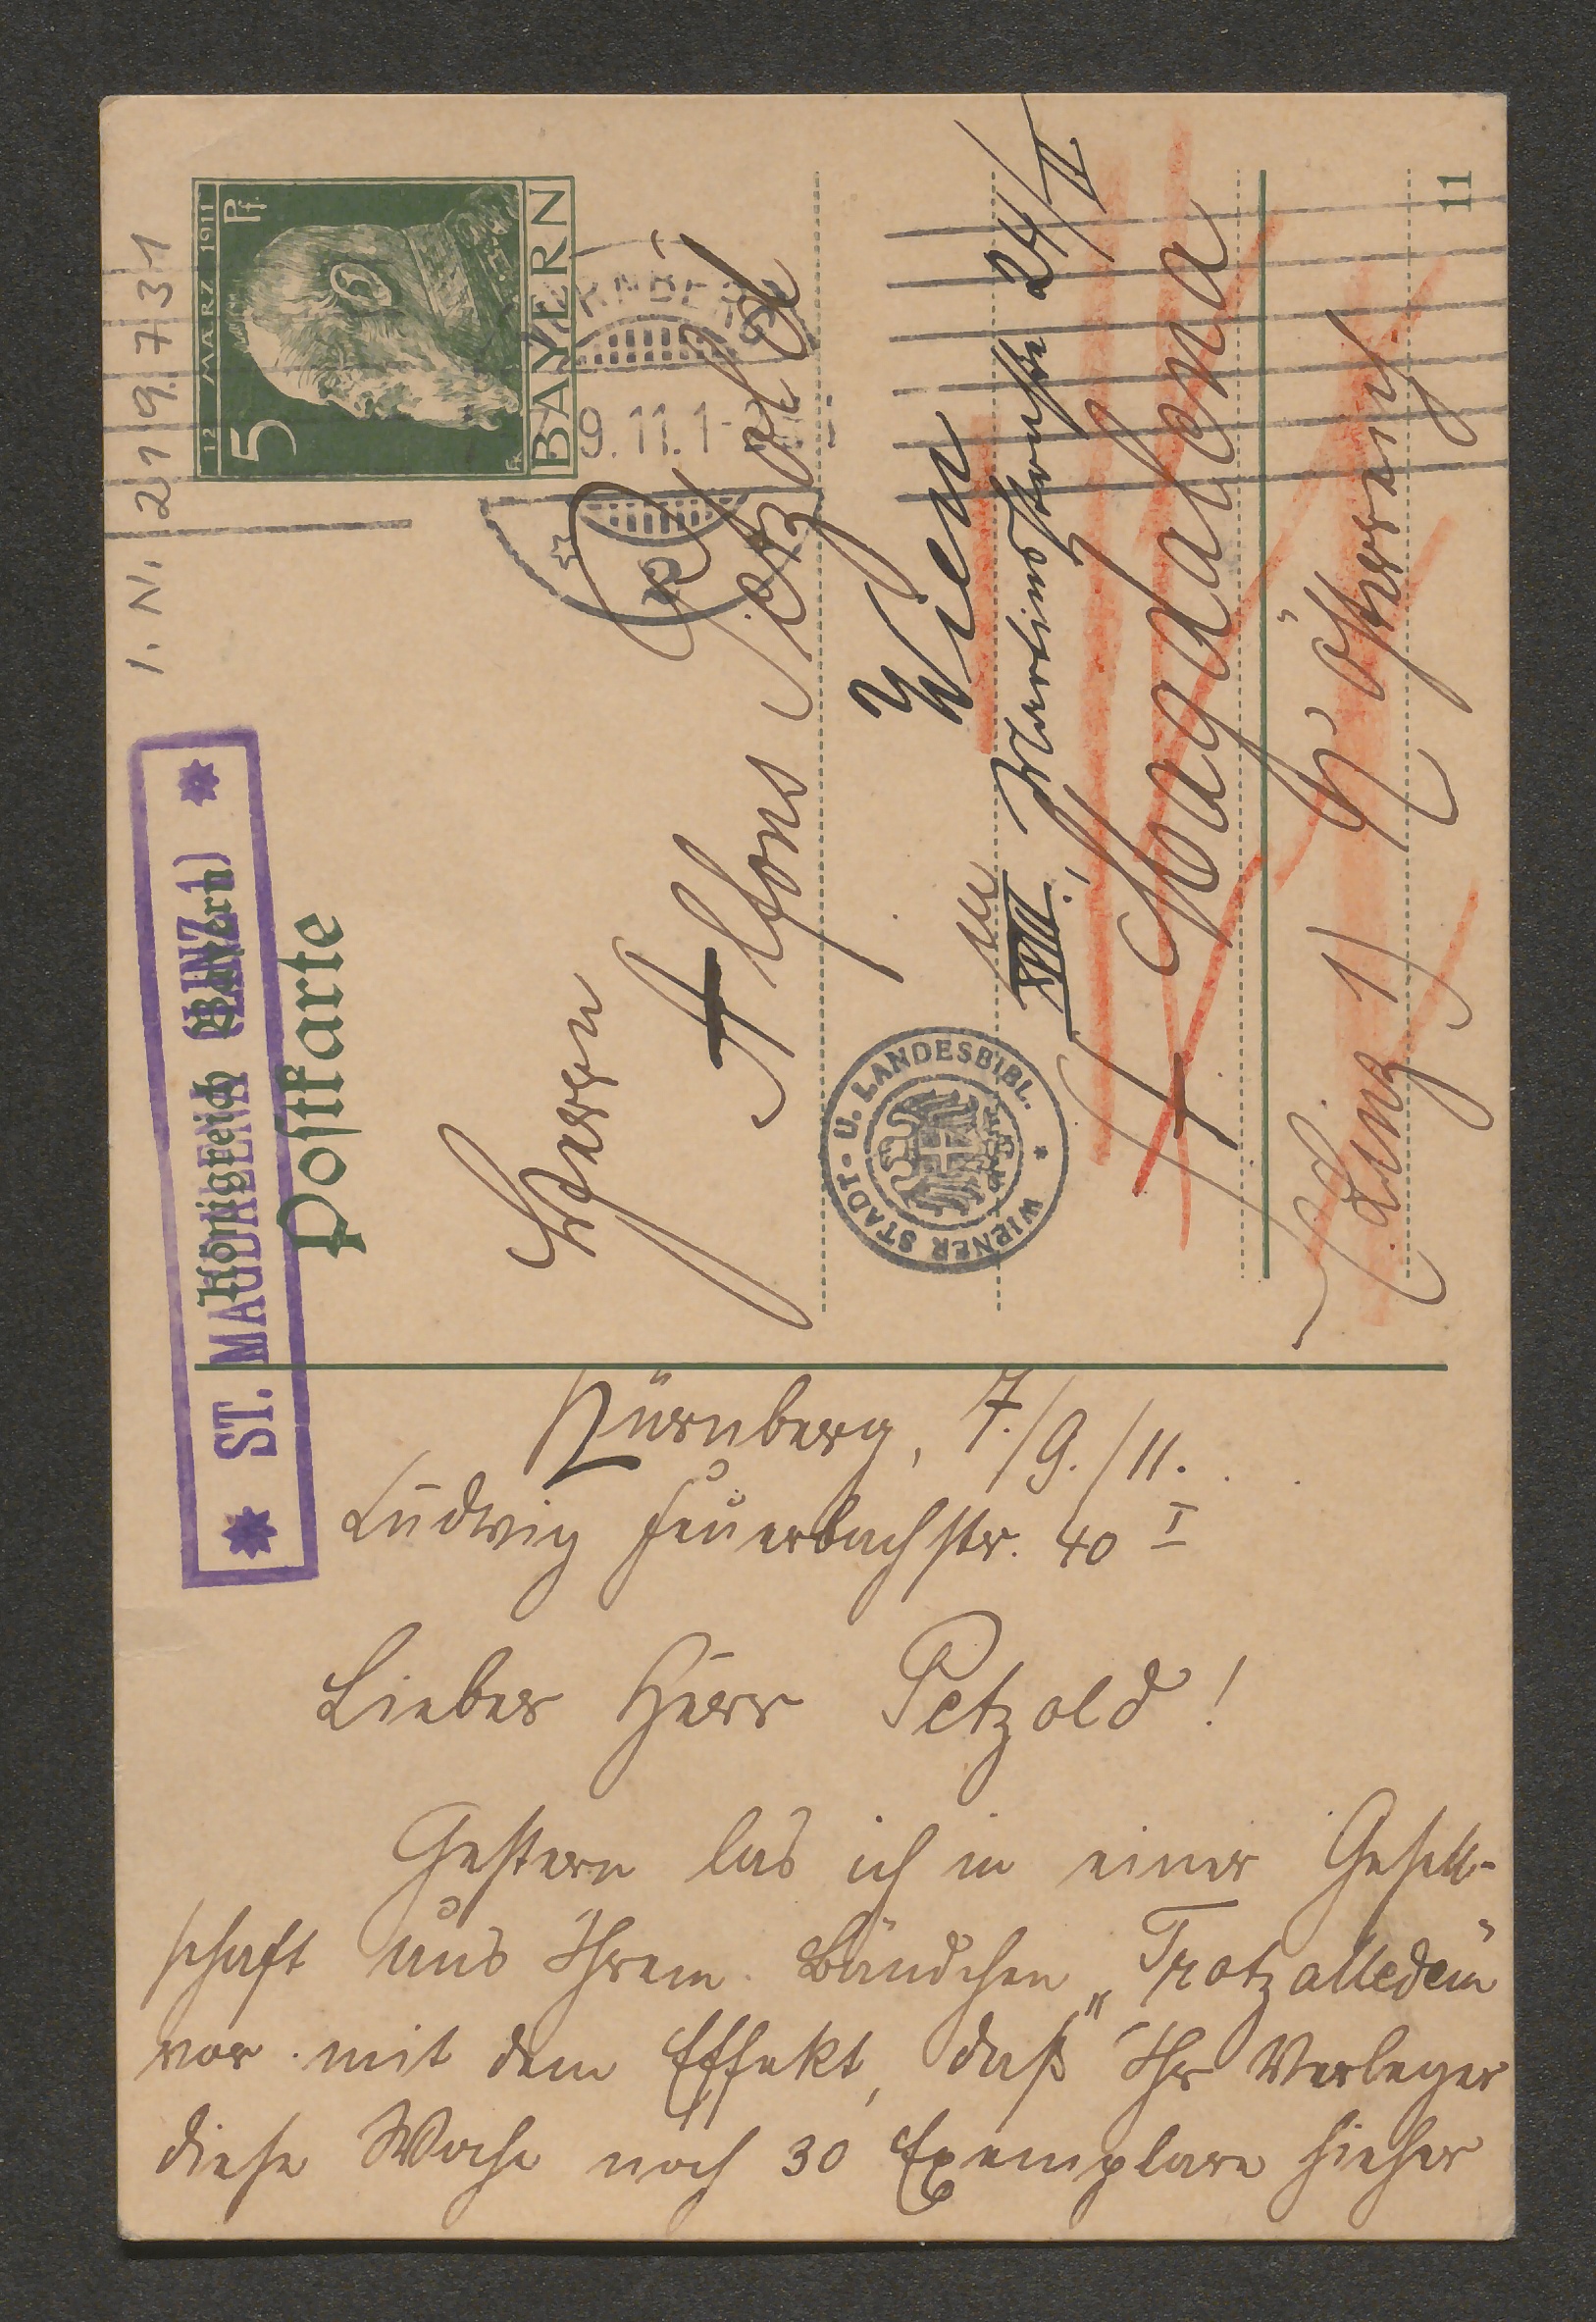 I. N. 219.731
12 MÄRZ 1911
5 Pf.
BAYERN
NÜRNBERG
9.11.1
2
ST. MAGDALENA (LINZ 1)
Königreich Bayern
Postkarte
Herrn
Alfons Petzold
Wien
in
XIII.
24/II
St. Magdalena
(Linz 1) N. österreich
WIENER STADT- U. LANDESBIBL.
11
Nürnberg, 7./9./11.
Ludwig Feuerbachstr. 40 I
Lieber Herr Petzold!
Gestern las ich in einer Gesell-
schaft aus Ihrem Bändchen „Trotzalledem"
vor mit dem Effekt, daß Ihr Verleger
diese Woche noch 30 Exemplare hieher